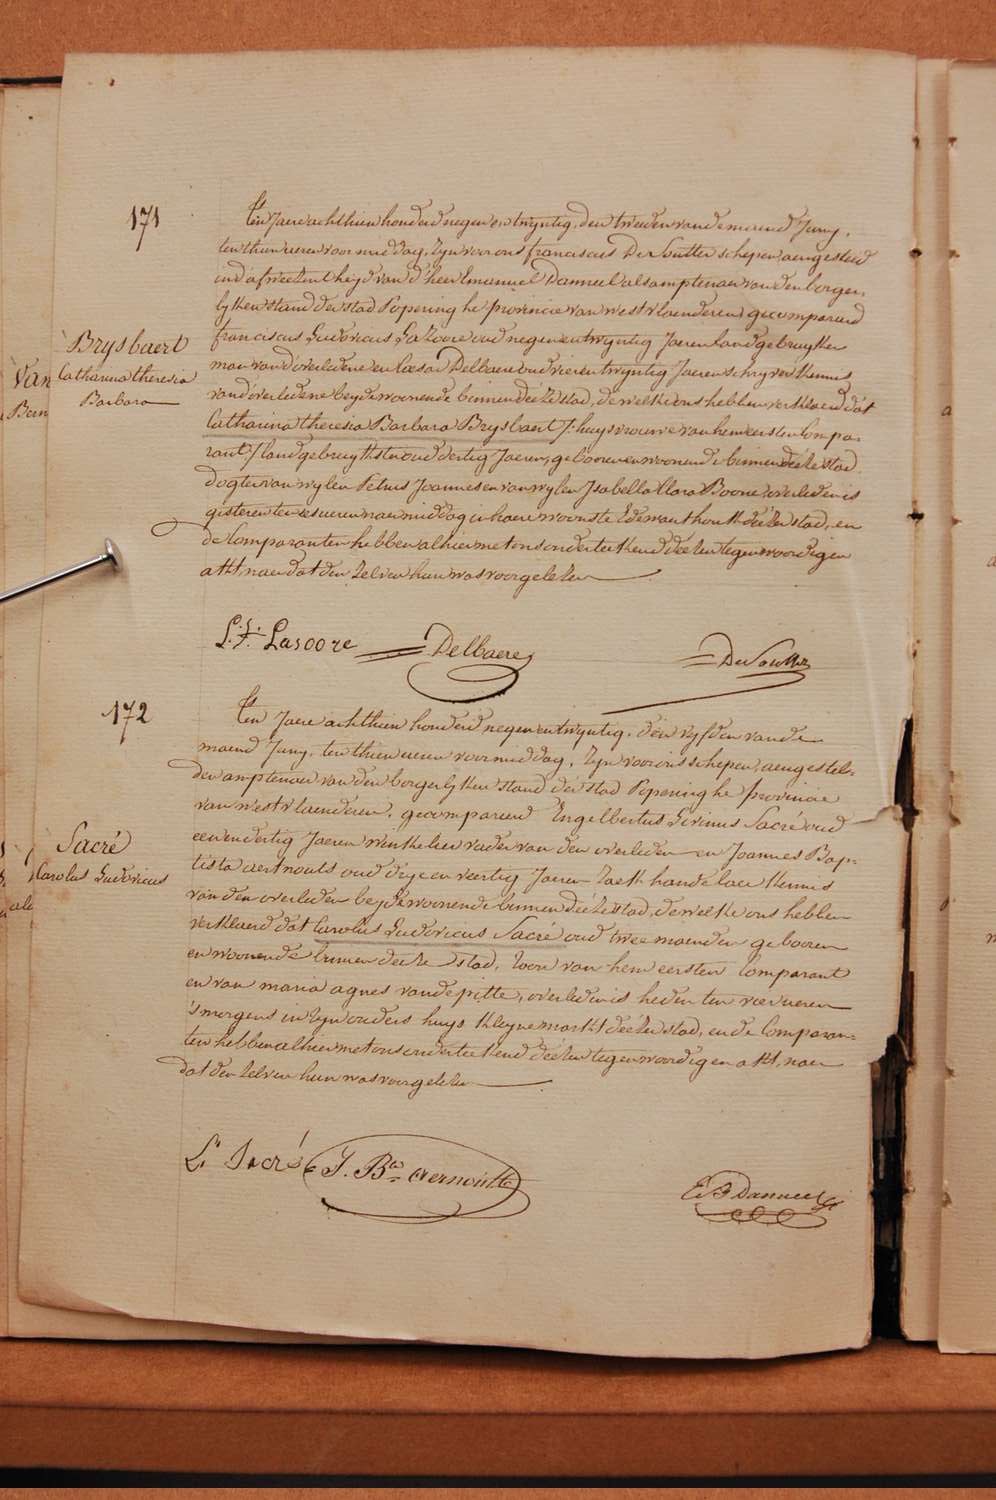 171
Ten Jaere achthien honderd negen en twyntig, den tweeden van de maend Juny,
ten thien ueren voor middag, Zyn voor ons franciscus De Soutter schepen aengesteld
ind' afweezentheyd van d'heer Emanuel Danneel als amptenaer van den borger-
lyken stand der stad Poperinghe provincie van westvlaenderen, gecompareerd
franciscus Ludovicus Lazoore oud negen en twyntig Jaeren Landgebruyker
man van d'overledene en Cæsar Delbaere oud vier en twyntig Jaeren schryver kennis
van d'overledene beyde woonende binnen deéze stad, de welke ons hebben verklaerd dat
Catharina theresia Barbara Brysbaert /: huysvrouwe van hem eersten Compa-
rant :/ landgebruykster oud dertig Jaeren, gebooren en woonende binnen deéze stad
Brysbaert
Catharina theresia
Barbara
dogter van wylen Petrus Joannes en van wylen Isabella Clara Boone overleden is
gisteren ten ses ueren naer middag in haere woonste Edewaerthoek deézer stad, en
de Comparanten hebben alhier met ons onderteekend deézen tegenwoordigen
akt, naer dat den zelven hun was voorgelezen
L.F. Lasoore Delbaere De Soutter
172
Ten Jaere achthien honderd negen en twyntig, den vyfden van de
maend Juny, ten thien ueren voor middag, Zyn voor ons schepen, aengestel-
den amptenaer van den borgerlyken stand der stad Poperinghe provincie
van westvlaenderen, gecompareerd Engelbertus Livinus Sacré oud
een en dertig Jaeren winkelier vader van den overleden en Joannes Bap-
tista aernouts oud drye en veertig Jaeren Zaekhandelaer kennis
van den overleden beyde woonende binnen deéze stad, de welke ons hebben
verklaerd dat Carolus Ludovicus Sacré oud twee maenden gebooren
Sacré
Carolus Ludovicus
en woonende binnen deéze stad, Zoon van hem eersten Comparant
en van maria agnes vandepitte, overleden is heden ten vier ueren
's morgens in zyn ouders huys kleynemarkt deézer stad, en de Comparan-
ten hebben alhier met ons onderteekend deézen tegenwoordigen akt, naer
dat den zelven hun was voorgelezen
L. Sacré J. Bta Aernoutte E. B Danneel